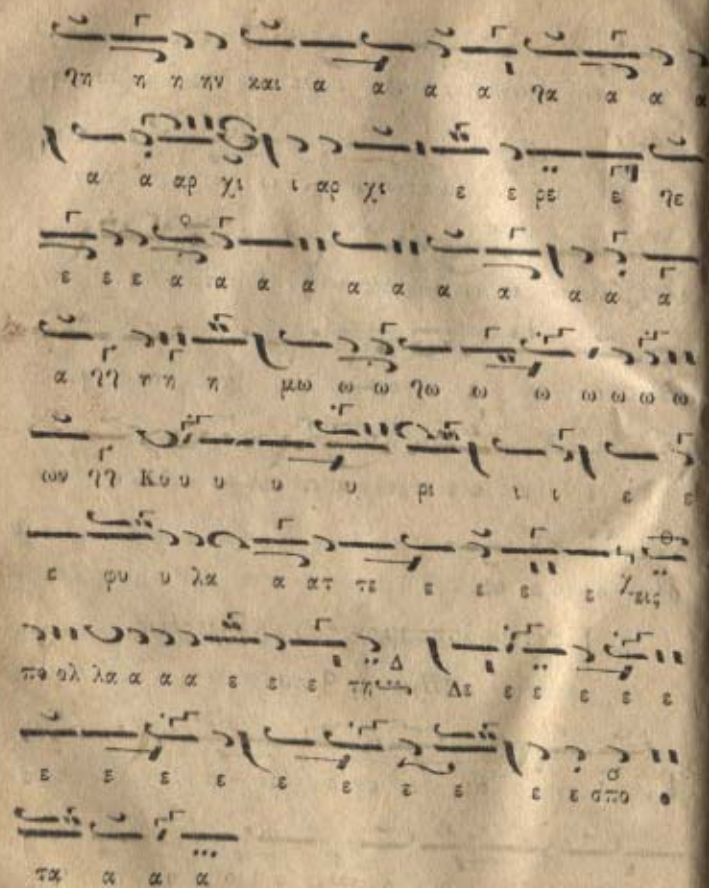 λη η η ην και α α α α λα α α α
α α αρ χι ι αρ χι ε ε ρε ε λε
ε ε ε α α α α α α α α α α
α γγ η η η μω ω ω λω ω ω ω ω ω ω
ων γγ Κυ υ υ υ υ ρι ι ι ε ε
ε φυ υ λα α ατ τε ε ε ε ε εις
πο ολ λα α α α ε ε ε τη Δ Δε ε ε ε ε ε
ε ε ε ε ε ε ε ε ε ε σπο ο
τα α α α